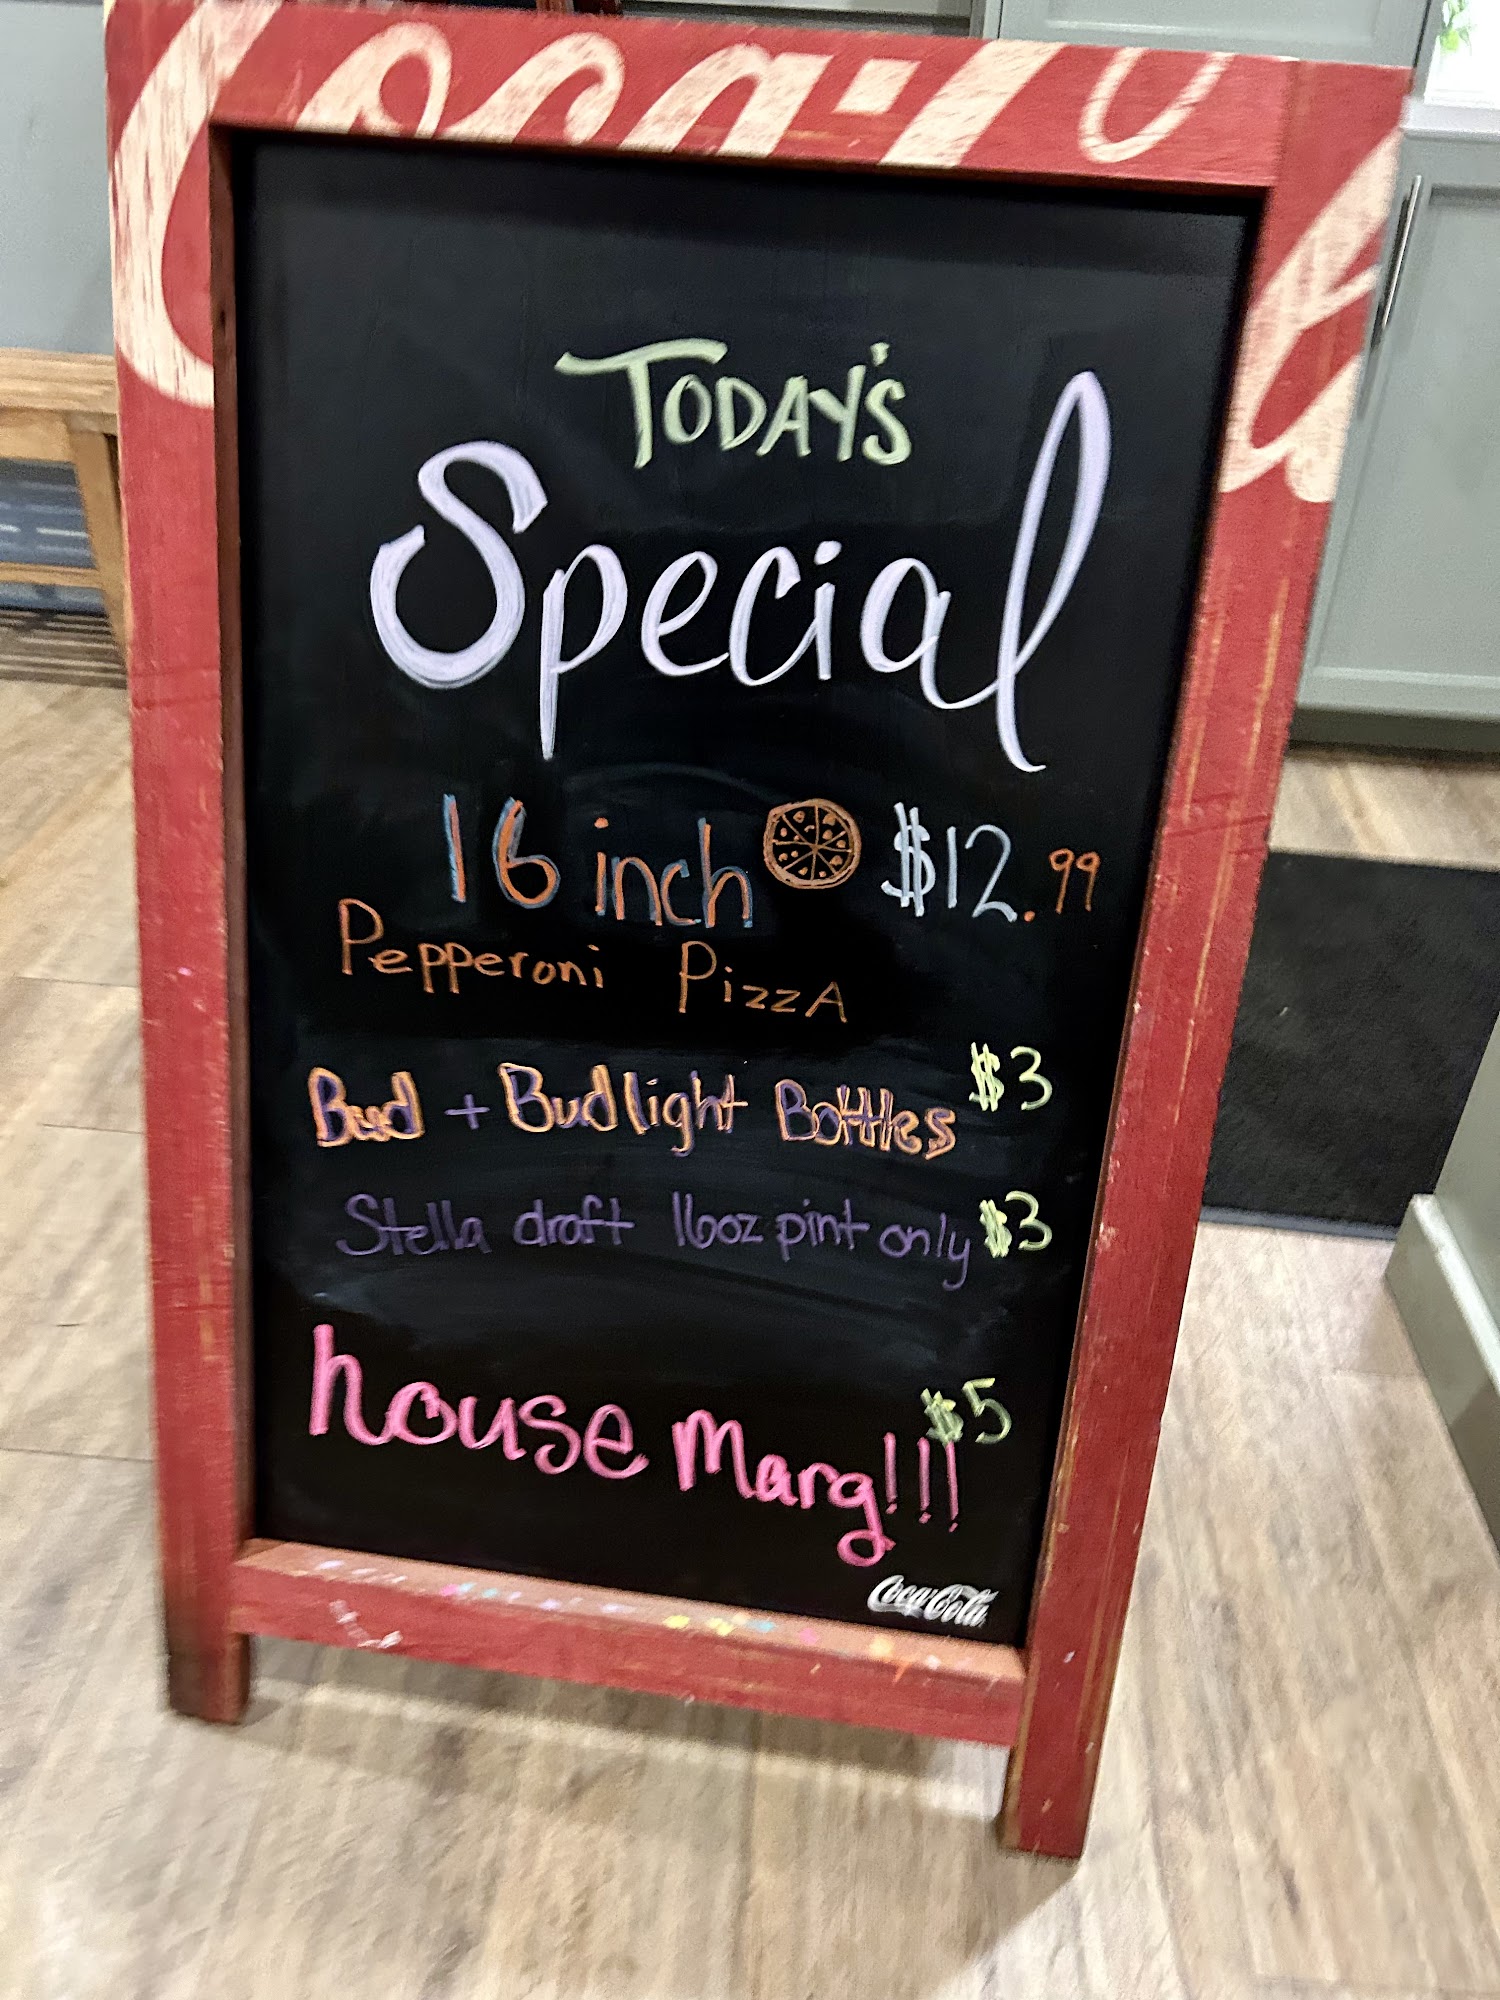 Coca-Cola
TODAY'S
Special
16 inch $12.99
Pepperoni PizzA
Bud + Budlight Bottles $3
Stella draft 16oz pint only $3
house marg!!! $5
Coca-Cola